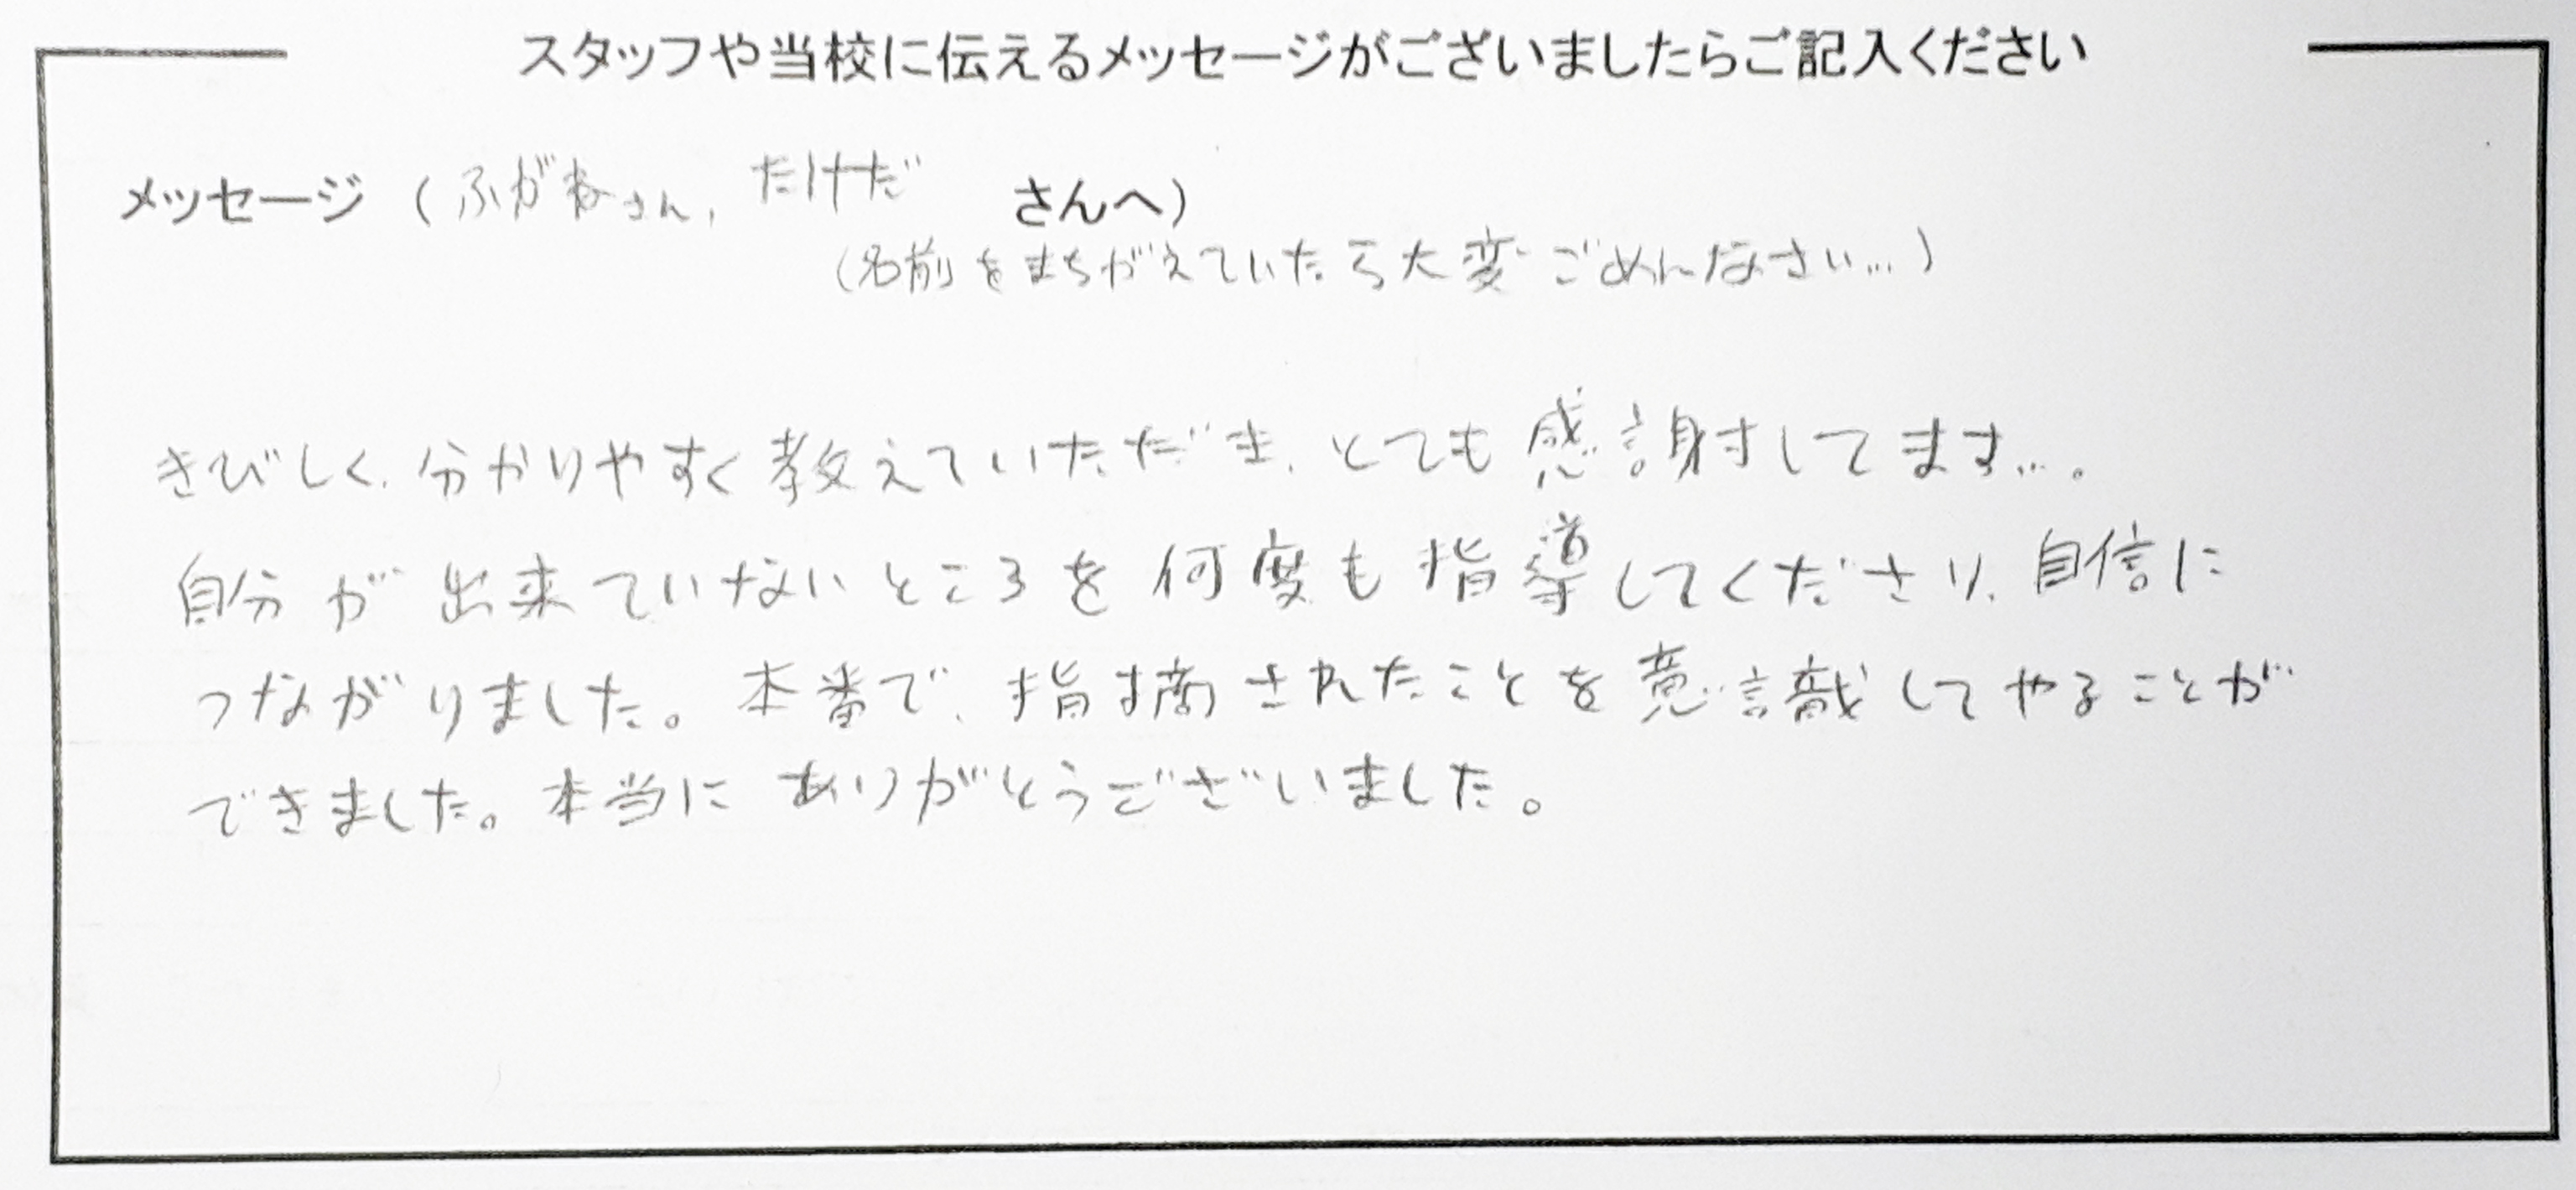 スタッフや当校に伝えるメッセージがございましたらご記入ください
メッセージ（ふがねさん, たけだ さんへ）
（名前をまちがえていたら大変ごめんなさい…）
きびしく、分かりやすく教えていただき、とても感謝してます…。
自分が出来ていないところを何度も指導してくださり、自信に
つながりました。本番で、指摘されたことを意識してやることが
できました。本当にありがとうございました。